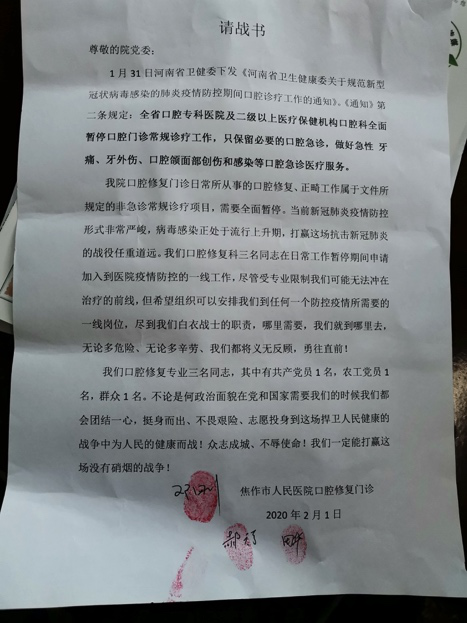 请战书
尊敬的院党委：
1月31日河南省卫健委下发《河南省卫生健康委关于规范新型
冠状病毒感染的肺炎疫情防控期间口腔诊疗工作的通知》。《通知》第
二条规定：全省口腔专科医院及二级以上医疗保健机构口腔科全面
暂停口腔门诊常规诊疗工作，只保留必要的口腔急诊，做好急性 牙
痛、牙外伤、口腔颌面部创伤和感染等口腔急诊医疗服务。
我院口腔修复门诊日常所从事的口腔修复、正畸工作属于文件所
规定的非急诊常规诊疗项目，需要全面暂停。当前新冠肺炎疫情防控
形式非常严峻，病毒感染正处于流行上升期，打赢这场抗击新冠肺炎
的战役任重道远。我们口腔修复科三名同志在日常工作暂停期间申请
加入到医院疫情防控的一线工作，尽管受专业限制我们可能无法冲在
治疗的前线，但希望组织可以安排我们到任何一个防控疫情所需要的
一线岗位，尽到我们白衣战士的职责，哪里需要，我们就到哪里去，
无论多危险、无论多辛劳、我们都将义无反顾，勇往直前！
我们口腔修复专业三名同志，其中有共产党员1名，农工党员1
名，群众1名。不论是何政治面貌在党和国家需要我们的时候我们都
会团结一心，挺身而出、不畏艰险、志愿投身到这场捍卫人民健康的
战争中为人民的健康而战！众志成城、不辱使命！我们一定能打赢这
场没有硝烟的战争！
焦作市人民医院口腔修复门诊
2020年2月1日